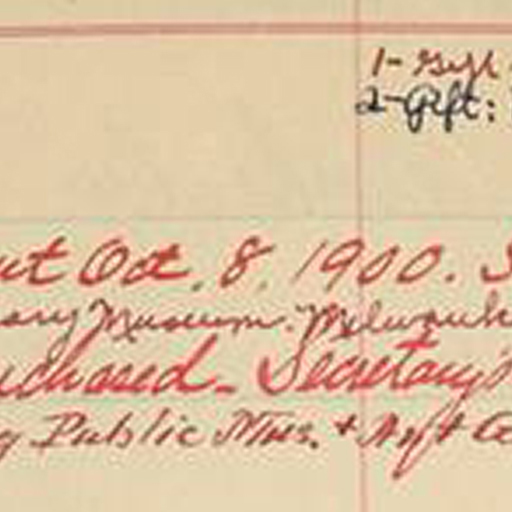 1- Gift
2- Gift:
Oct. 8, 1900.
Museum. Milwauk
uchased - Secretary's
Public Mus. +